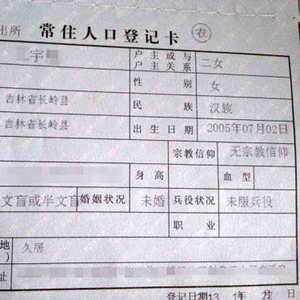 出所 常住人口登记卡 农
宇 户主或与户主关系 二女
性别 女
吉林省长岭县 民族 汉族
吉林省长岭县 出生日期 2005年07月02日
宗教信仰 无宗教信仰
身高 血型
文盲或半文盲 婚姻状况 未婚 兵役状况 未服兵役
职业
地) 久居
址
登记日期